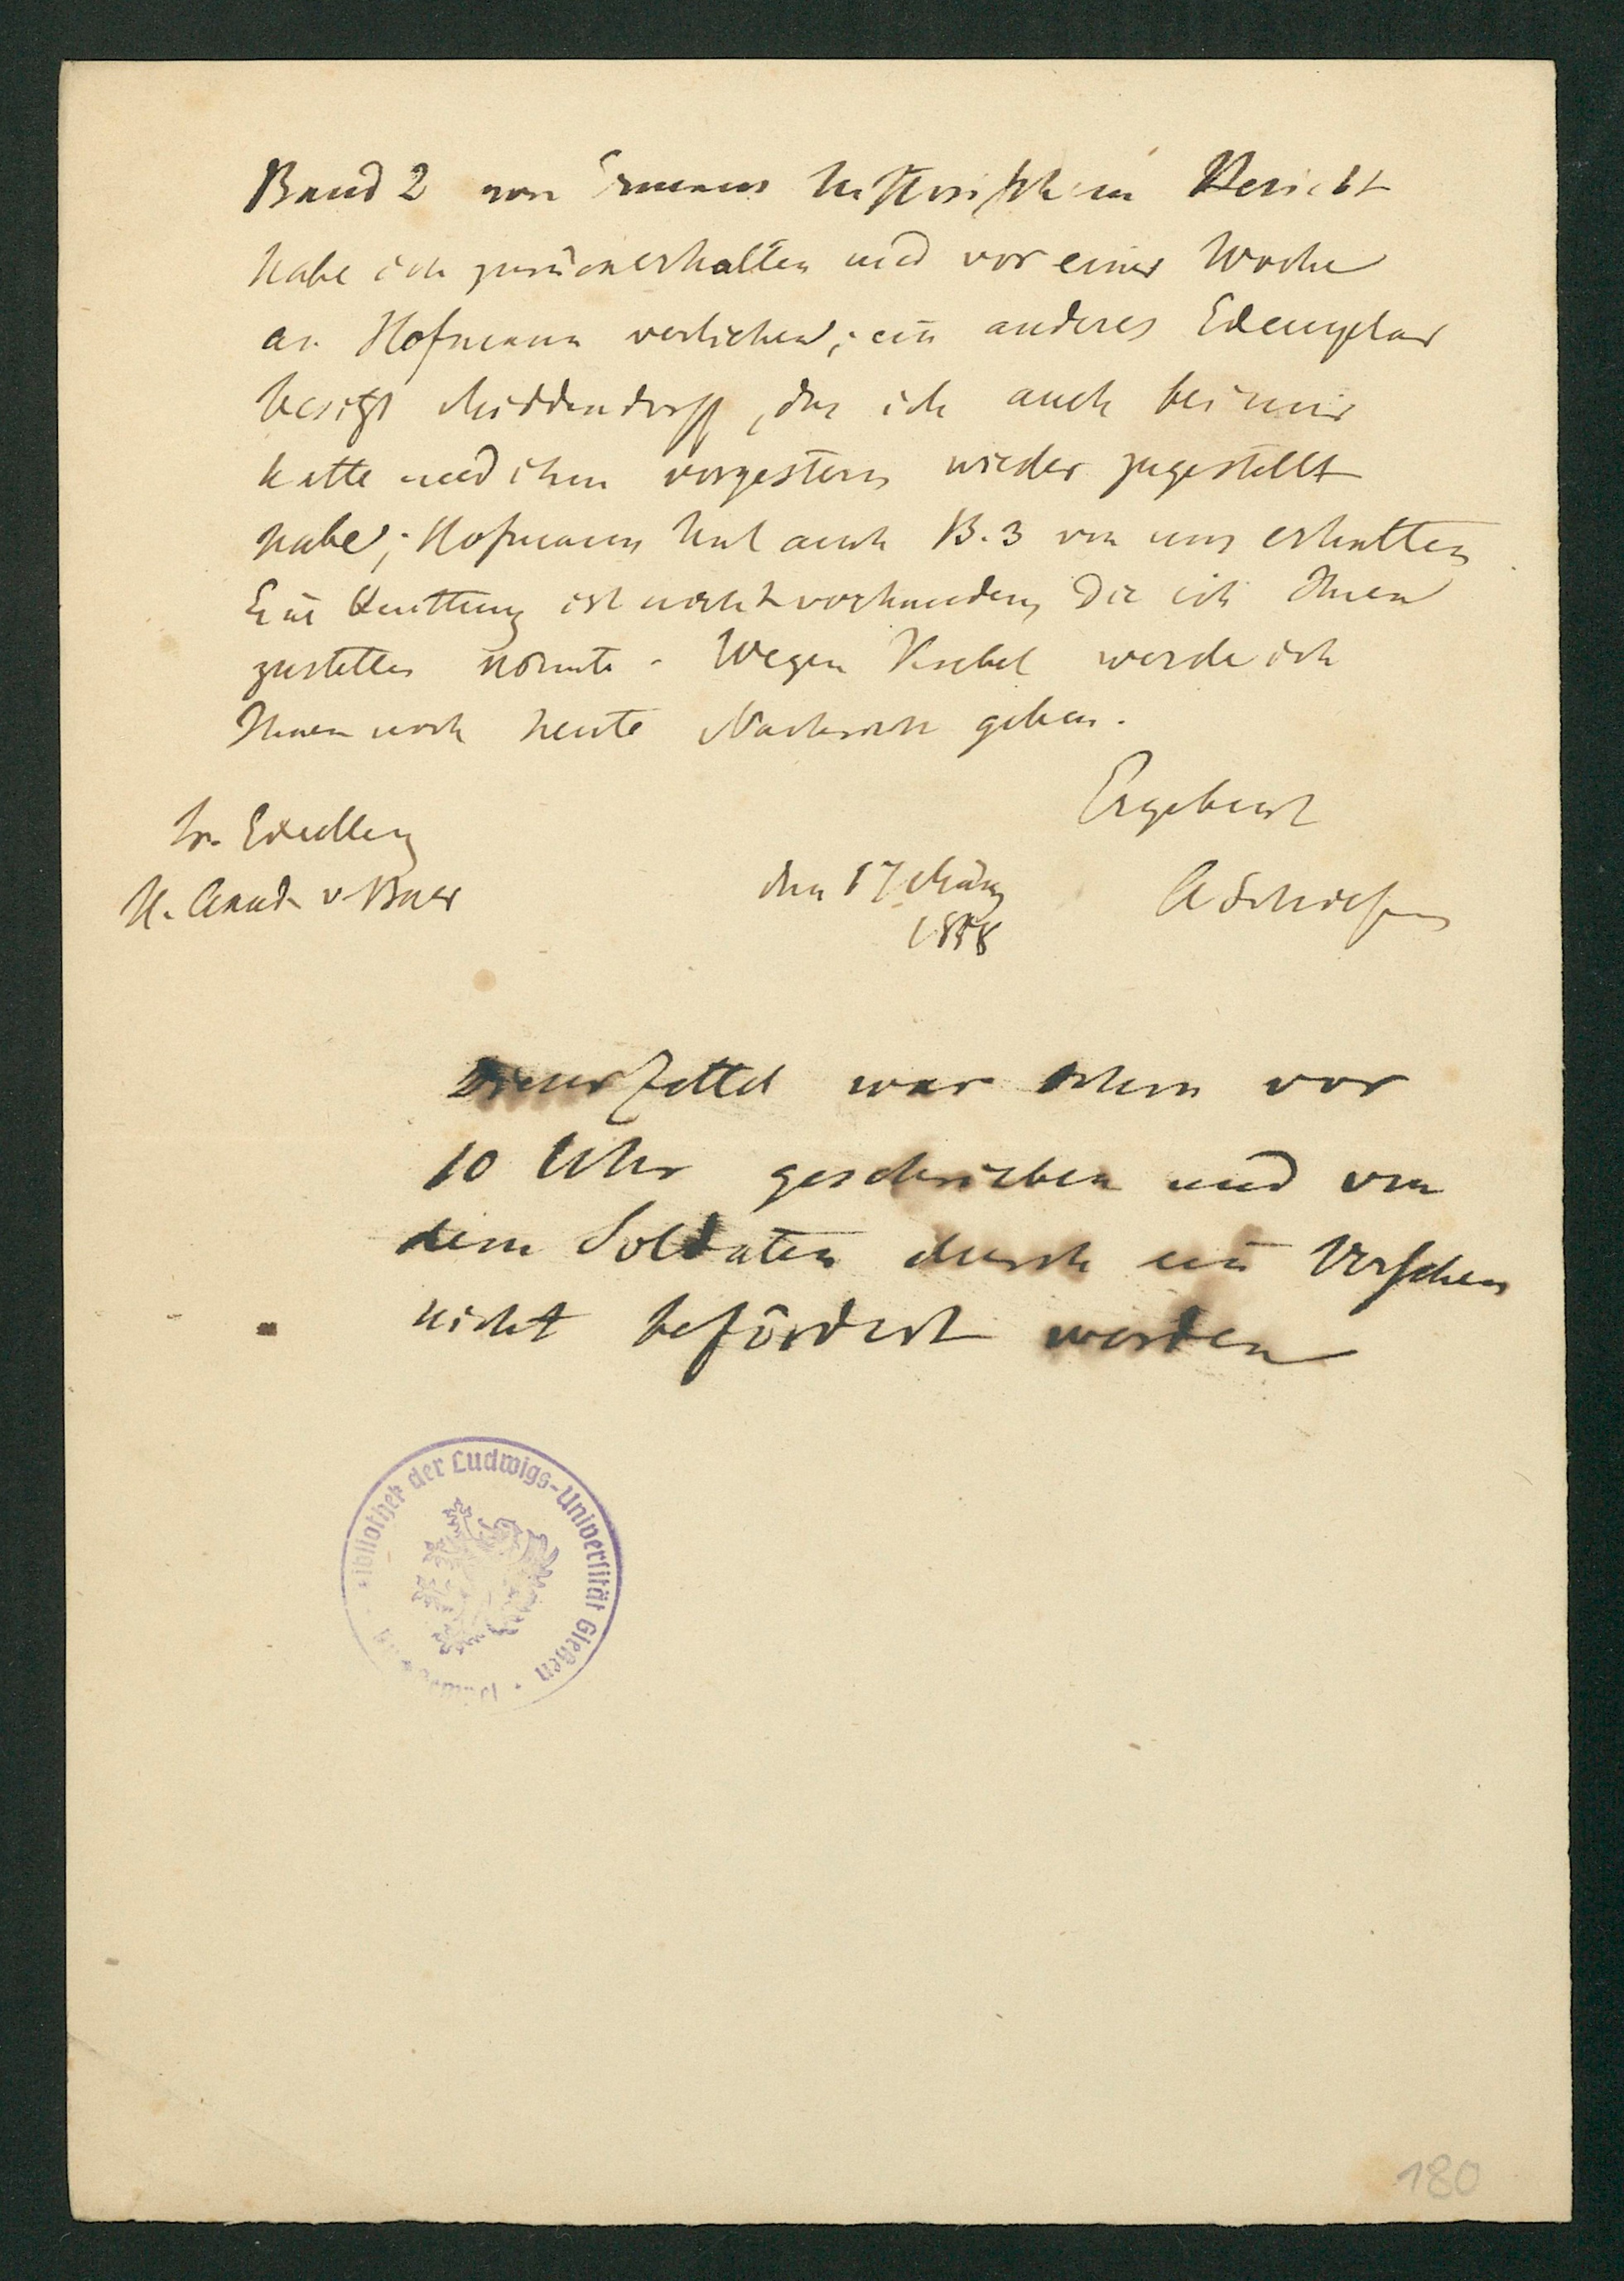 Band 2 von Ermans historischem Bericht
habe ich zurückerhalten und vor einer Woche
an Hofmann verliehen; ein anderes Exemplar
besitzt Middendorff, das ich auch bei mir
hatte und ihm vorgestern wieder zugestellt
habe; Hofmann hat auch B. 3 von uns erhalten
Eine Quittung ist nicht vorhanden, die ich Ihnen
zustellen könnte. Wegen werde ich
Ihnen noch heute Nachricht geben.
Ergebenst
Sr. Excellenz
H. Akad. v. Baer
den 17 März
1858
A Schiefner
Dieser Zettel war schon vor
10 Uhr geschrieben und von
dem Soldaten durch ein Versehen
nicht befördert worden
Bibliothek der Ludwigs-Universität Gießen
180